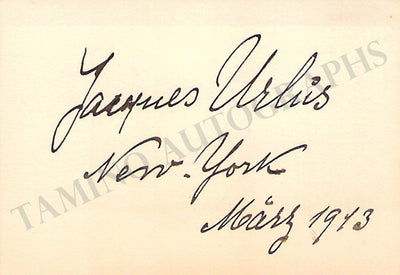 Jacques Urlus
New-York
März 1913
TAMINO AUTOGRAPHS